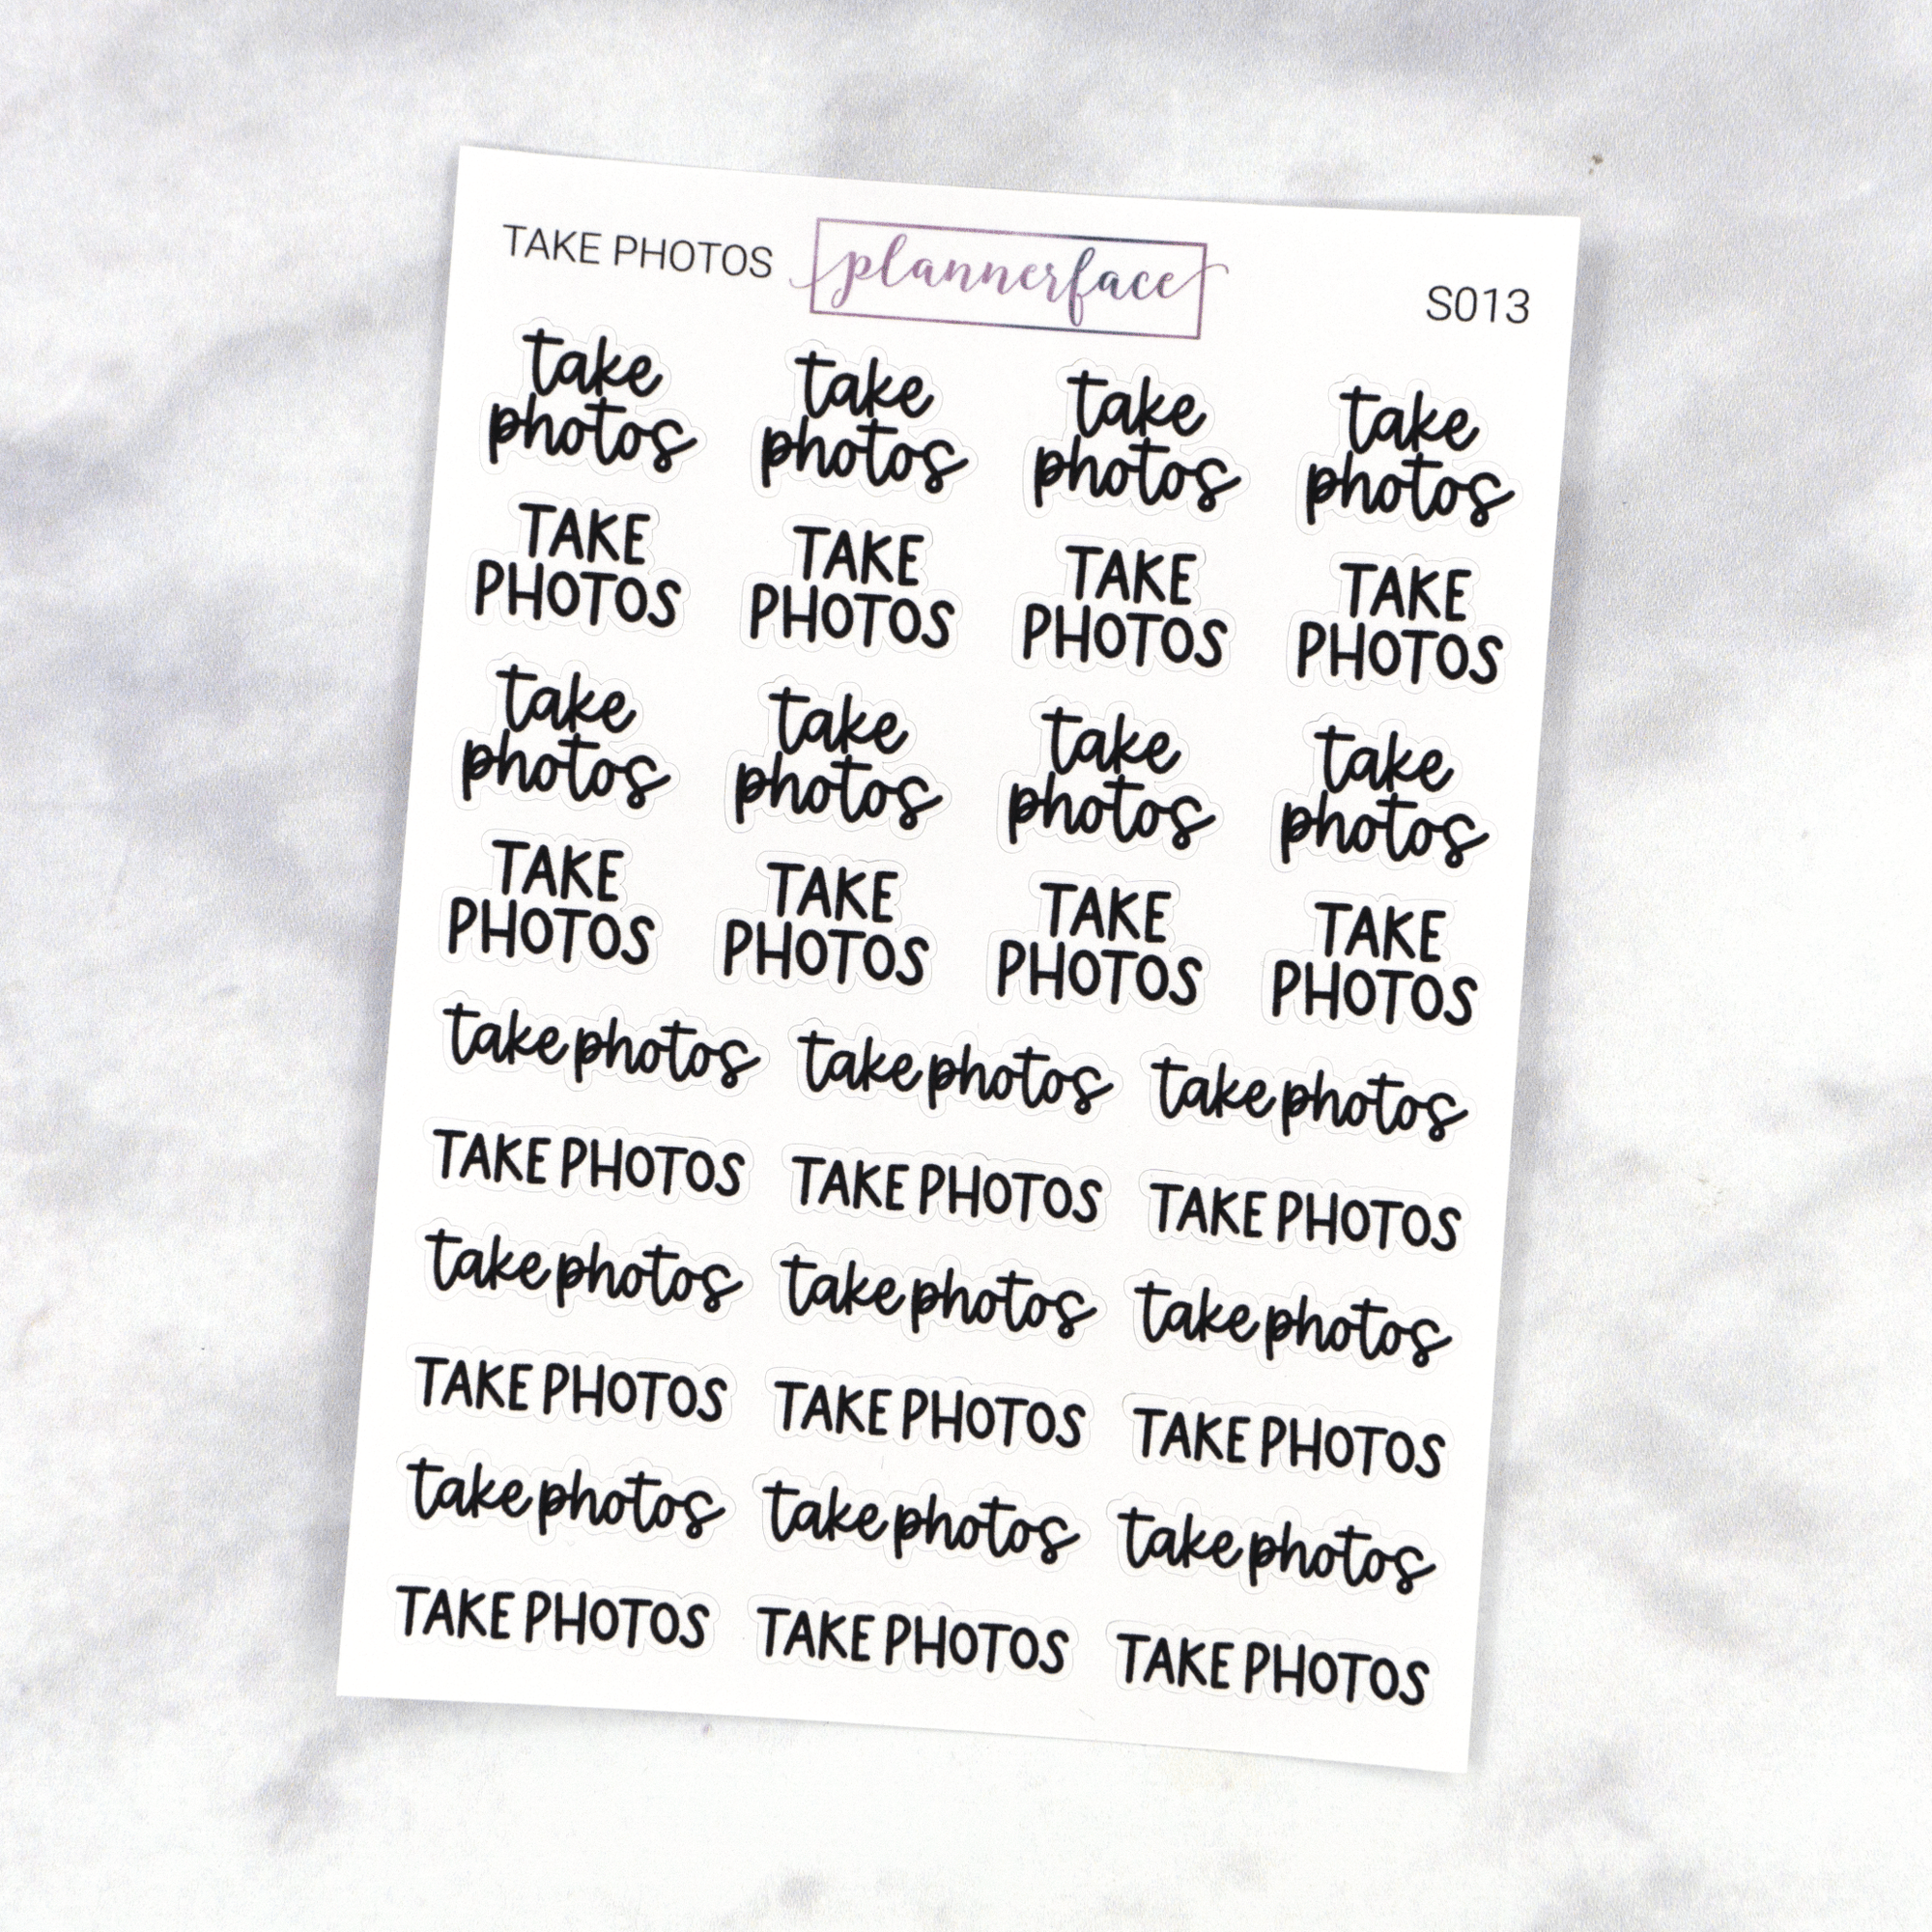 TAKE PHOTOS plannerface S013
take take take take
photos photos photos photos
TAKE TAKE TAKE TAKE
PHOTOS PHOTOS PHOTOS PHOTOS
take take take take
photos photos photos photos
TAKE TAKE TAKE TAKE
PHOTOS PHOTOS PHOTOS PHOTOS
take photos take photos take photos
TAKE PHOTOS TAKE PHOTOS TAKE PHOTOS
take photos take photos take photos
TAKE PHOTOS TAKE PHOTOS TAKE PHOTOS
take photos take photos take photos
TAKE PHOTOS TAKE PHOTOS TAKE PHOTOS